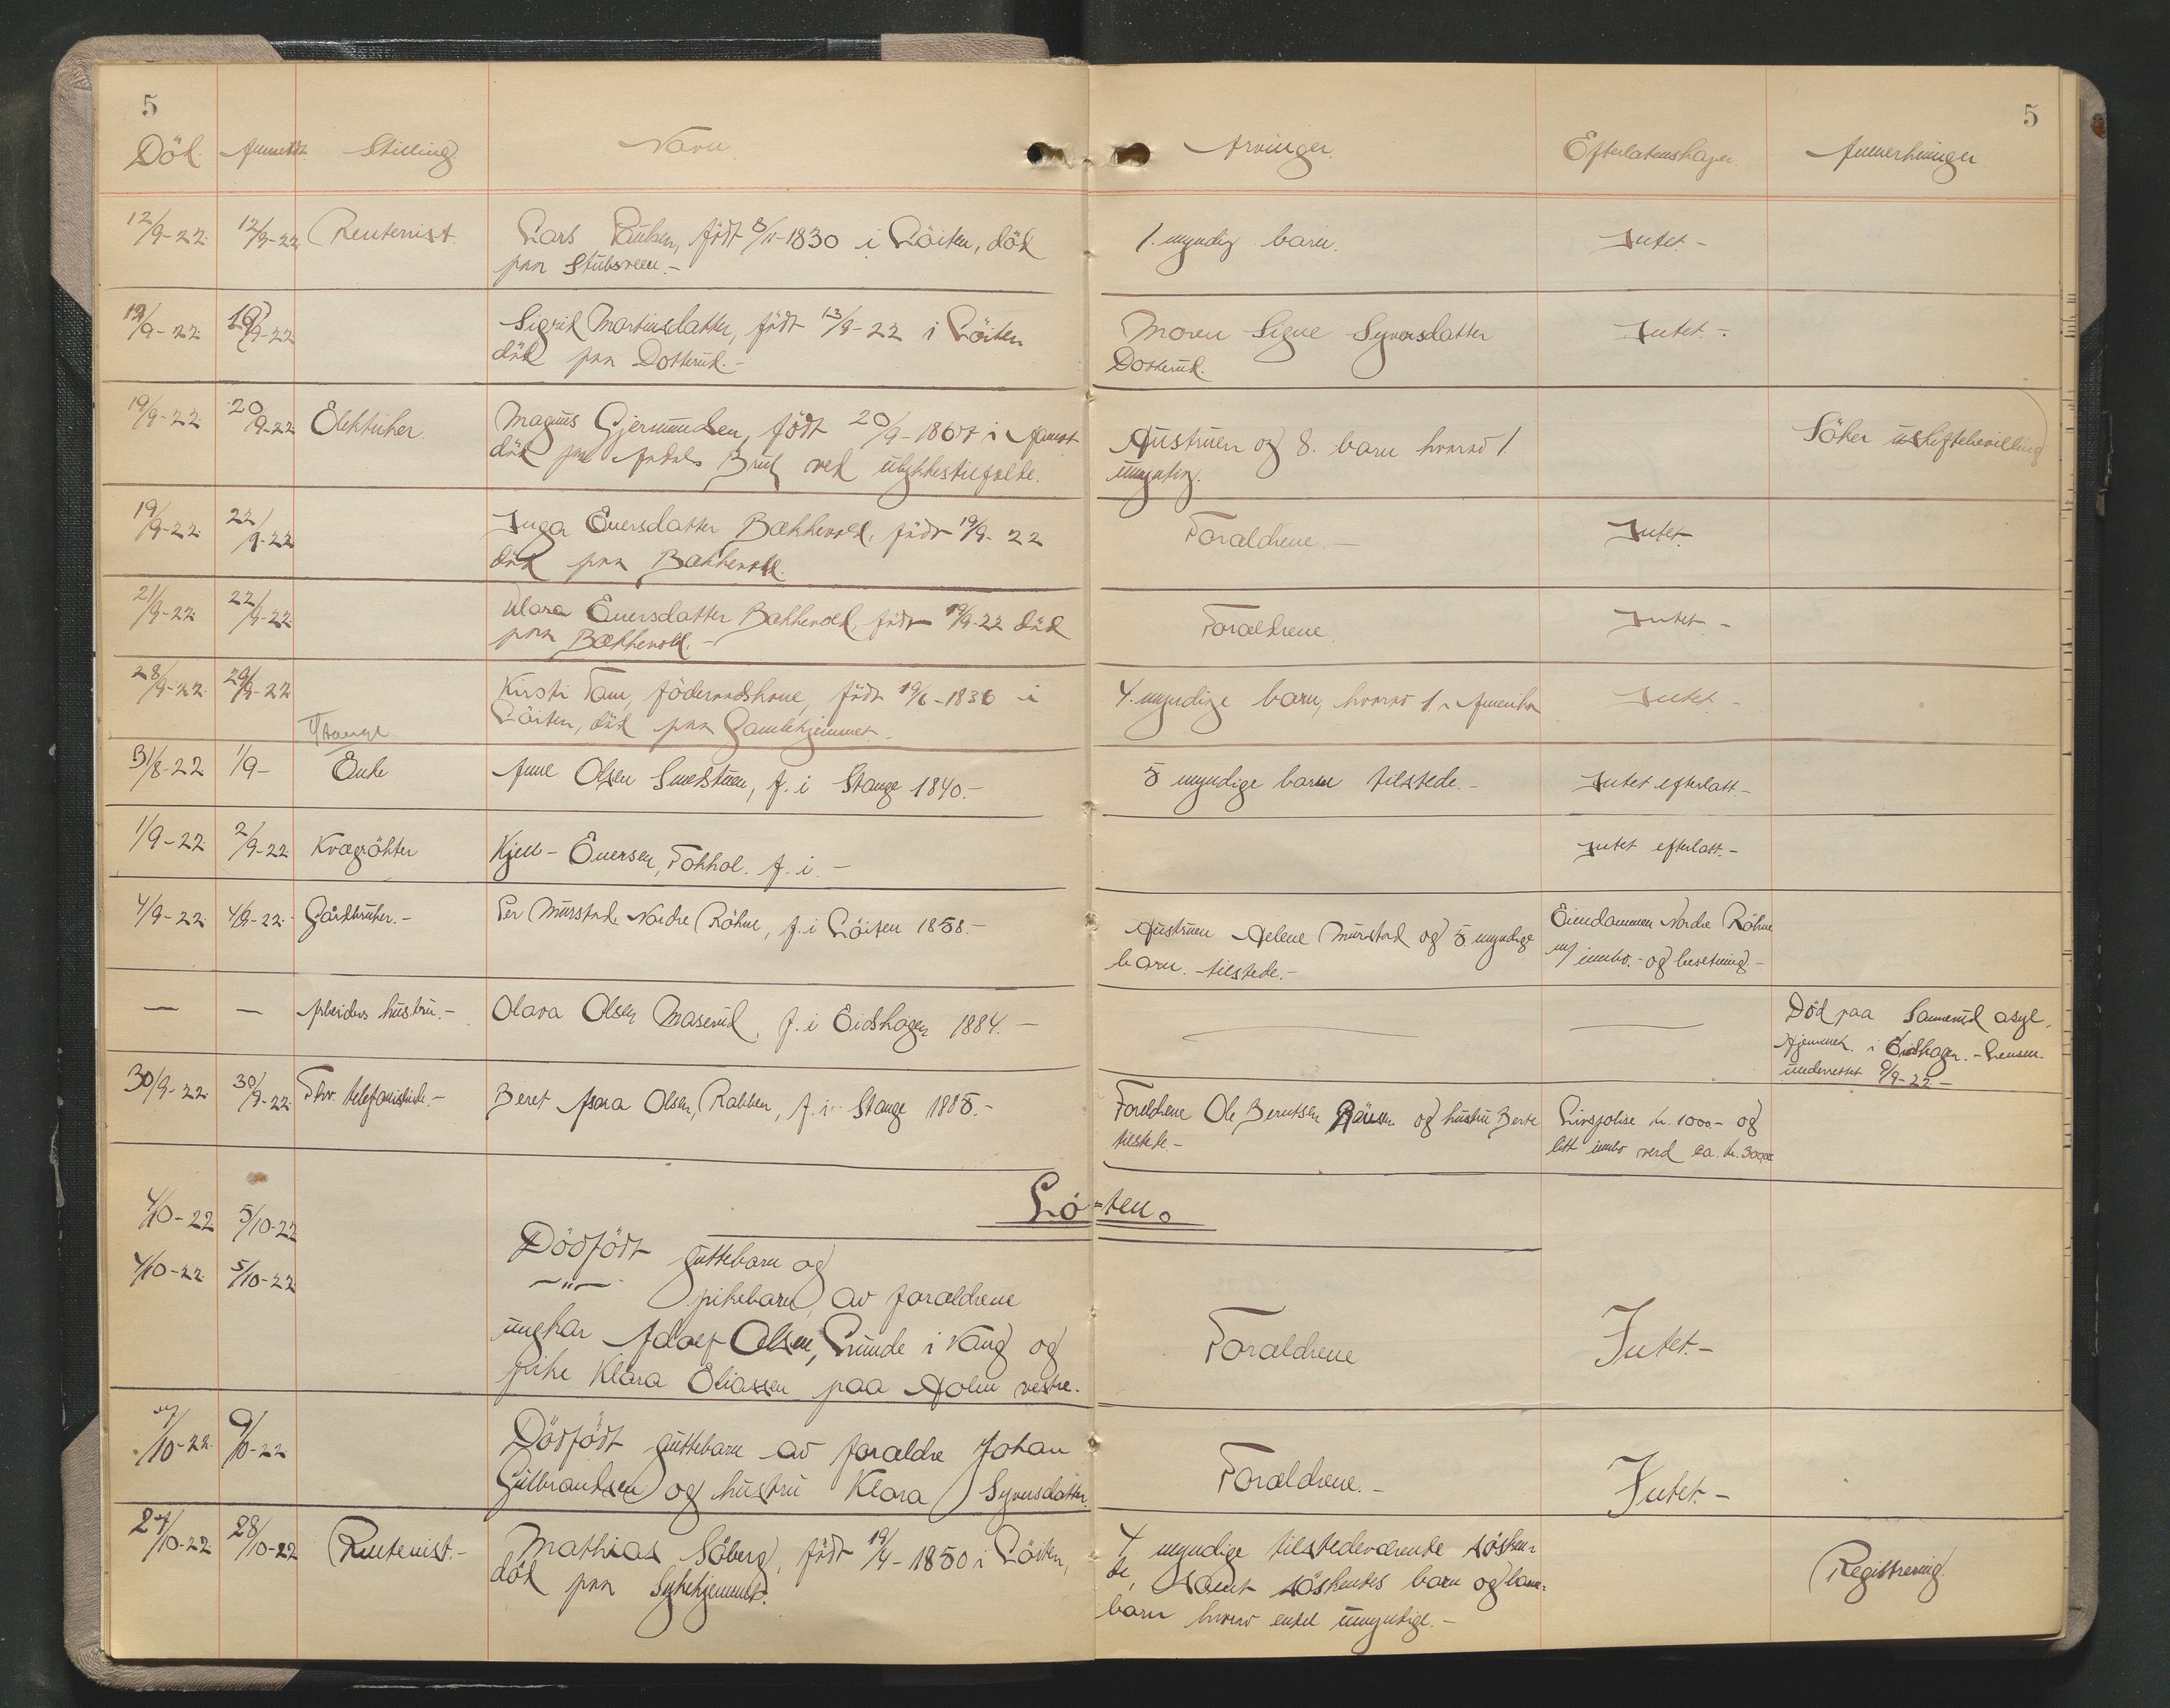 5
5
Död. Anmeldt Stilling Navn Arvinger. Efterladenskaper Anmerkninger
12/9-22. 12/9-22 Rentenist. Lars Paulsen, födt 8/11-1830 i Löiten, död 1. myndig barn. Intet.-
paa Stubsveen.-
19/9-22. Sigrid Martinsdatter, födt 13/9-22 i Löiten Moren Signe Syversdatter Intet.-
död paa Dotterud.- Dotterud.
19/9-22 20/9-22 Elektriker. Magnus Gjermundsen, födt 20/9- i Hustruen og 8. barn hvorav 1. Söker uskiftebevilling
död paa Aadals Bruk ved ulykkestilfælde. umyndig.
19/9-22. 22/9-22 Inga Enersdatter Bækkevold, födt 19/9-22 Forældrene.- Intet.
död paa Bækkevold.
21/9-22. 22/9-22. Klara Enersdatter Bækkevold, födt 19/9-22 död Forældrene. Intet.-
paa Bækkevold.-
28/9-22. 29/9-22 Kirsti Tam, föderaadskone, födt 19/6-1836 i 4. myndige barn, hvorav 1 i Amerika Intet.-
Löiten, död paa Gamlehjemmet.-
Stange
31/8-22 1/9- Enke Anne Olsen Smedstuen, f. i Stange 1840.- 5 myndige barn tilstede.- Intet efterlatt.-
1/9-22 2/9-22 Kvægrökter Kjell- Enersen, Tokhol. f. i.- Intet efterlatt.-
4/9-22. 4/9-22.- Gårdbruker.- Per Murstad Nordre Röhne, f. i Löiten 1858.- Hustruen Helene Murstad og 5 myndige Eiendommen Nordre Röhne
barn. tilstede.- m/ innbo.- og besetning-
— — Arbeiders hustru.- Olava Olsen Maserud, f. i Eidskogen 1884.- Död paa Sannerud asyl,
Hjemmeh. i Eidskogen.- Lensm.
underrettet 9/9-22-
30/9-22. 30/9-22. Fhv. telefonistinde.- Beret Aara Olsen, Rabben, f. i Stange 1885.- Foreldrene Ole Berntsen og hustru Berte Livspolise kr. 1000.- og
tilstede.- litt innbo verd ca. kr. 300,00
Lö-ten.
4/10-22 5/10-22 Dödfödt guttebarn og
4/10-22. 5/10-22 —"— pikebarn, av forældrene
ungkar Adolf Olsen, Lunde i Vang og Forældrene Intet.-
pike Klara Eliassen paa Holm vestre.
7/10-22. 9/10-22 Dödfödt guttebarn av forældre Johan Forældrene.- Intet.-
Gulbrandsen og hustru Klara Syversdatter.
27/10-22 28/10-22 Rentenist.- Mathias Söberg, födt 19/4-1850 i Löiten, 4 myndige tilstedeværende sösken- Registrering.
död paa Sykehjemmet. de, samt söskendes barn og barne-
barn hvorav endel umyndige.-